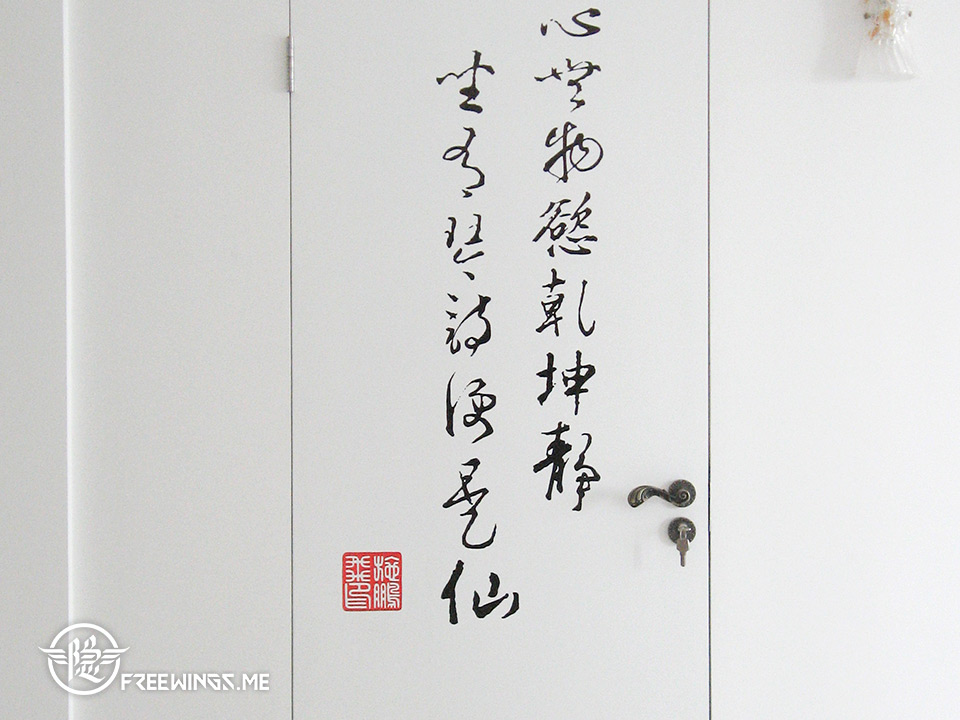 心無物慾乾坤靜
坐有琴詩便是仙
隱
FREEWINGS.ME